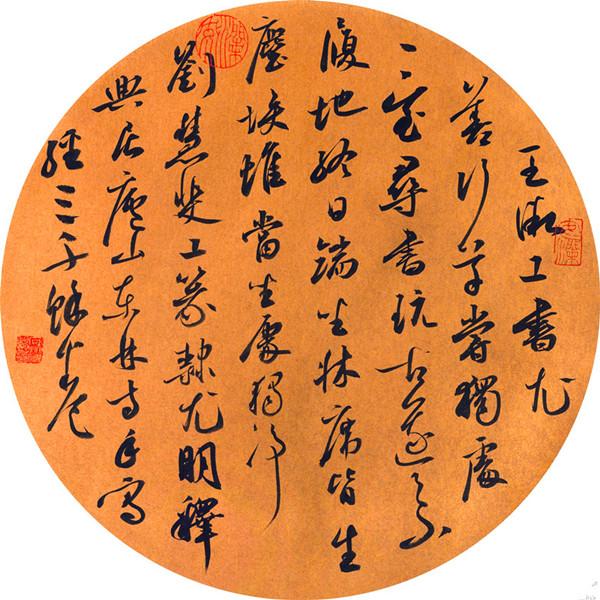 王微工書尤
善行草嘗獨處
一室尋書玩古遂不
履地終日端坐牀席皆生
塵埃惟當坐處獨淨
劉慧斐工篆隸尤明釋
典居廬山東林寺手寫
經三千餘卷